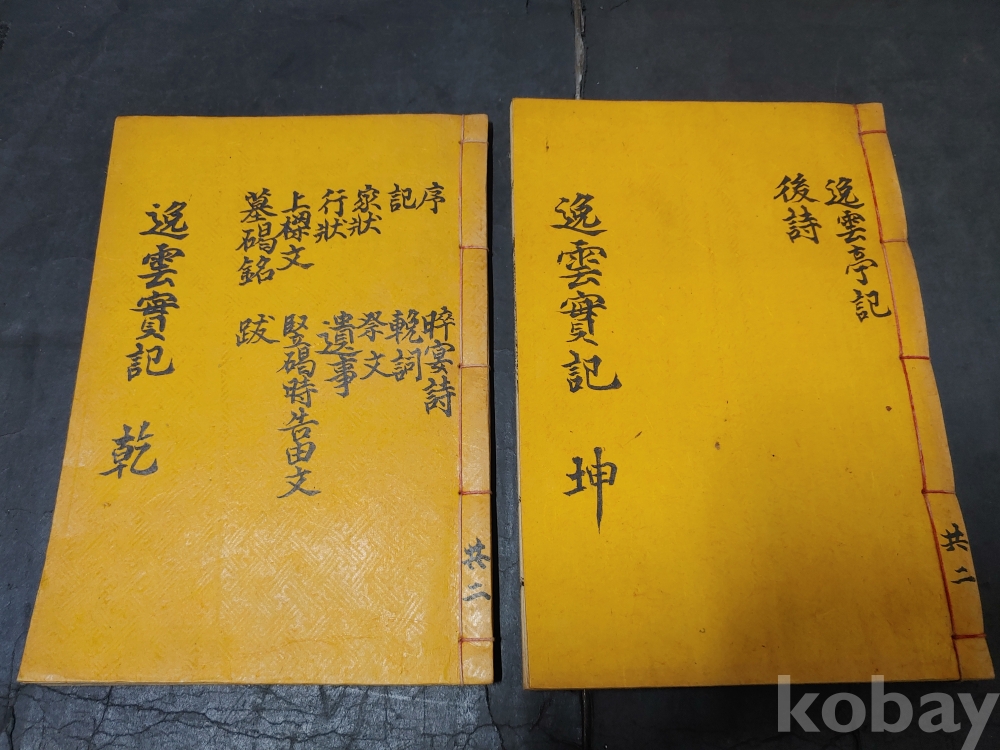 序
記
家狀
行狀
上樑文
墓碣銘
晬宴詩
輓詞
祭文
遺事
竪碣時告由文
跋
逸雲實記 乾
共二
逸雲亭記
後詩
逸雲實記 坤
共二
kobay